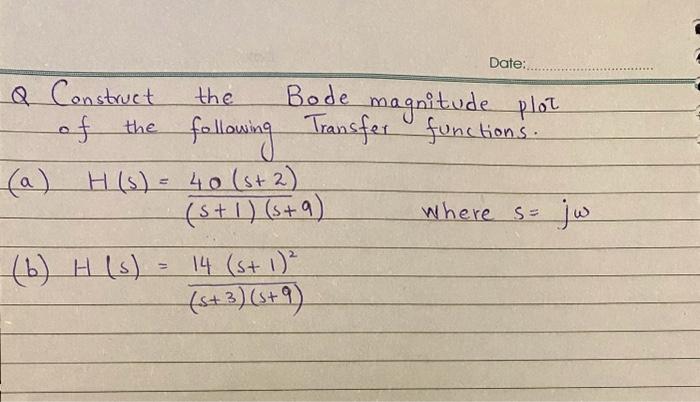 Date:
Q Construct the Bode magnitude plot
of the following Transfer functions.
(a) H(s) = 40(s+2)
(s+1)(s+9) where s= jω
(b) H(s) = 14 (s+1)²
(s+3)(s+9)